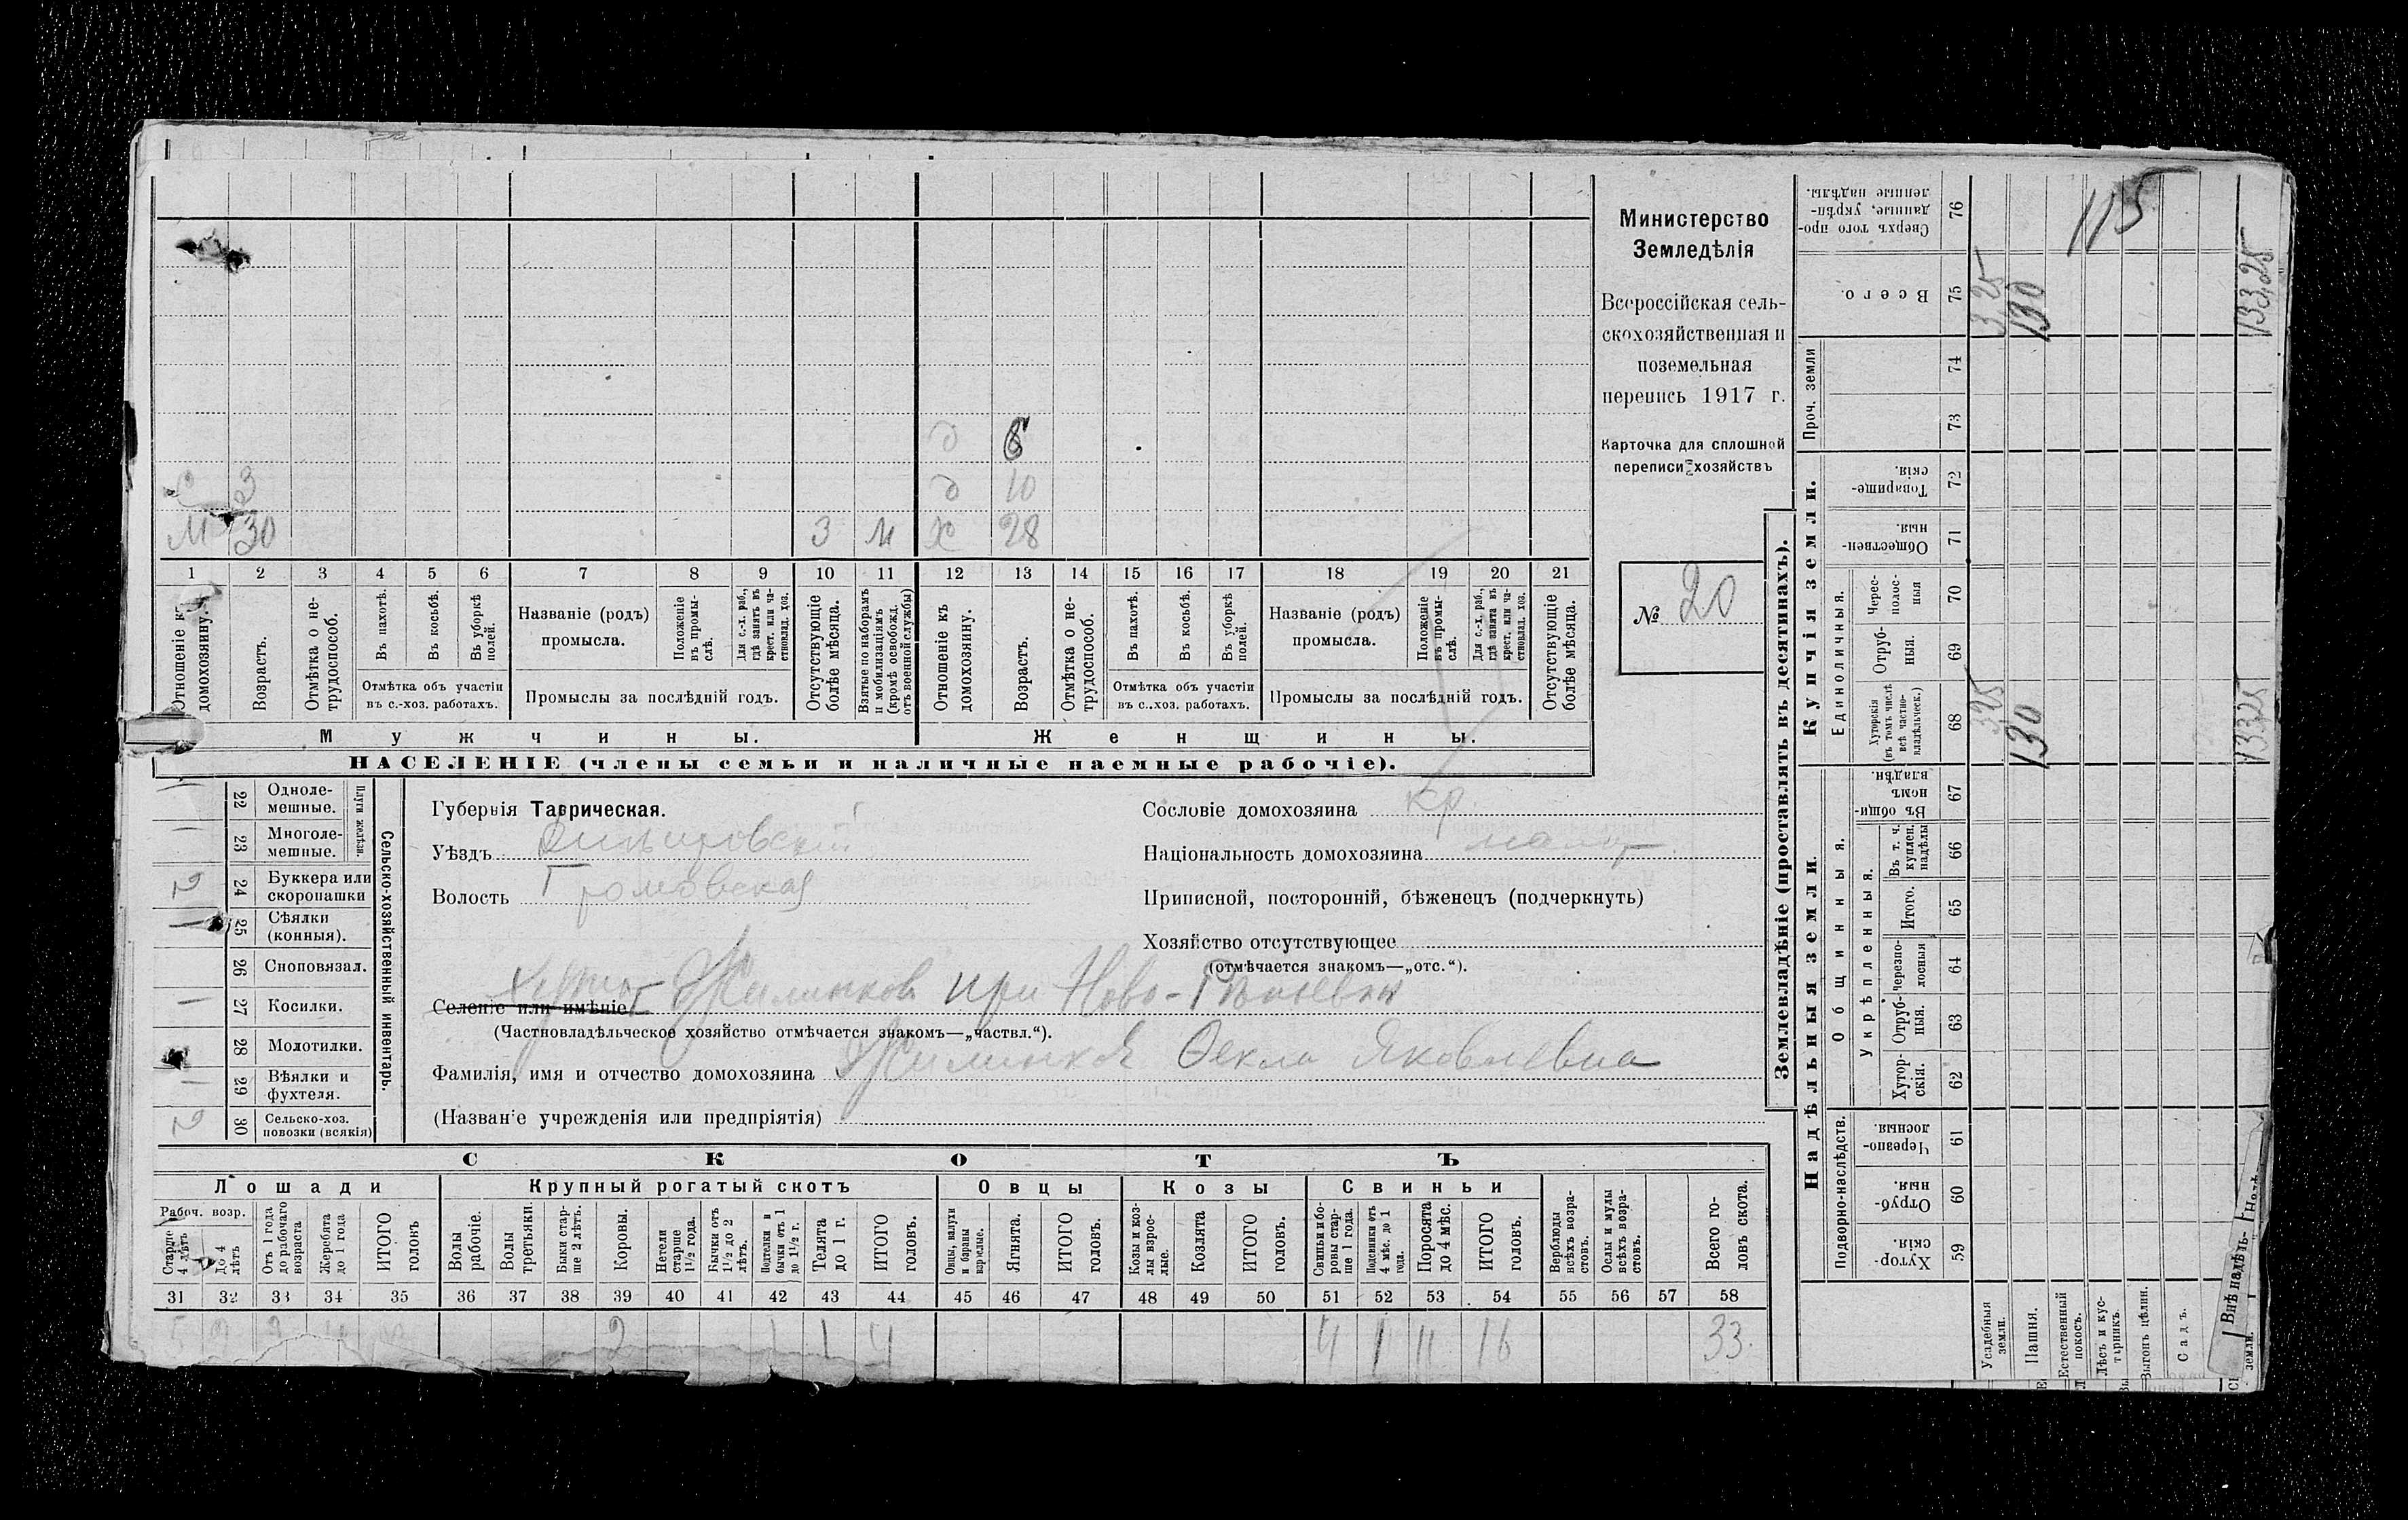 115
д 6
С 3 д 10
М 30 3 м х 28
1 2 3 4 5 6 7 8 9 10 11 12 13 14 15 16 17 18 19 20 21
Отношеніе къ домохозяину.
Возрастъ.
Отмѣтка о не-
трудоспособ.
Въ пахотѣ.
Въ косьбѣ.
Въ уборкѣ
полей.
Отмѣтка объ участіи
въ с.-хоз. работахъ.
Названіе (родъ)
промысла.
Положеніе
въ промы-
слѣ.
Для с.-х. раб.,
гдѣ занятъ въ
крест. или ча-
стновлад. хоз.
Промыслы за послѣдній годъ.
Отсутствующіе
болѣе мѣсяца.
Взятые по наборамъ
и мобилизаціямъ
(кромѣ освобожд.
отъ военной службы)
Отношеніе къ
домохозяину.
Возрастъ.
Отмѣтка о не-
трудоспособ.
Въ пахотѣ.
Въ косьбѣ.
Въ уборкѣ
полей.
Отмѣтка объ участіи
въ с.-хоз. работахъ.
Названіе (родъ)
промысла.
Положеніе
въ промы-
слѣ.
Для с.-х. раб.,
гдѣ занята въ
крест. или ча-
стновлад. хоз.
Промыслы за послѣдній годъ.
Отсутствующіе
болѣе мѣсяца.
Мужчины.
Женщины.
НАСЕЛЕНІЕ (члены семьи и наличные наемные рабочіе).
Министерство
Земледѣлія
Всероссійская сель-
скохозяйственная и
поземельная
перепись 1917 г.
Карточка для сплошной
переписи хозяйствъ
№ 20
Сельско-хозяйственный инвентарь.
Плуги желѣзн.
22 Одноле-
мешные.
23 Многоле-
мешные.
2 24 Буккера или
скоропашки
25 Сѣялки
(конныя).
26 Сноповязал.
27 Косилки.
28 Молотилки.
29 Вѣялки и
фухтеля.
2 30 Сельско-хоз.
повозки (всякія)
Губернія Таврическая.
Уѣздъ
Волость Громовская
Хутор Жилинков при Ново-
Селеніе или имѣніе
(Частновладѣльческое хозяйство отмѣчается знакомъ—„частвл.“).
Фамилія, имя и отчество домохозяина Ѳекла Яковлевна
(Названіе учрежденія или предпріятія)
Сословіе домохозяина кр.
Національность домохозяина
Приписной, посторонній, бѣженецъ (подчеркнуть)
Хозяйство отсутствующее
(отмѣчается знакомъ—„отс.“).
СКОТЪ
Лошади
Рабоч. возр.
Старше
4 лѣтъ
До 4
лѣтъ
Отъ 1 года
до рабочаго
возраста
Жеребята
до 1 года
ИТОГО
головъ
Крупный рогатый скотъ
Волы
рабочіе.
Волы
третьяки.
Быки стар-
ше 2 лѣтъ.
Коровы.
Нетели
старше
1½ года.
Бычки отъ
1½ до 2
лѣтъ.
Подтелки и
бычки отъ 1
до 1½ г.
Телята
до 1 г.
ИТОГО
головъ.
Овцы
Овцы, валухи
и бараны
взрослые.
Ягнята.
ИТОГО
головъ.
Козы
Козы и коз-
лы взрос-
лые.
Козлята
ИТОГО
головъ.
Свиньи
Свиньи и бо-
ровы стар-
ше 1 года.
Подсвинки отъ
4 мѣс. до 1
года.
Поросята
до 4 мѣс.
ИТОГО
головъ.
Верблюды
всѣхъ возра-
стовъ.
Ослы и мулы
всѣхъ возра-
стовъ.
Всего го-
ловъ скота.
31 32 33 34 35 36 37 38 39 40 41 42 43 44 45 46 47 48 49 50 51 52 53 54 55 56 57 58
2 1 1 4 4 1 11 16 33
Землевладѣніе (проставлять въ десятинахъ).
Сверхъ того про-
данные, укрѣп-
ленные надѣлы.
76
Всего.
75 3,25 130 133,25
Проч. земли
74
73
Купчія земли.
Товарище-
скія.
72
Обществен-
ныя.
71
Единоличныя.
Черес-
полос-
ныя
70
Отруб-
ныя.
69
Хуторскія
(въ томъ числѣ
всѣ частно-
владѣльческ.)
68 3,25 130 133,25
Надѣльныя земли.
Общинныя.
Въ общи-
номъ
владѣн.
67
Укрѣпленныя.
Въ т. ч.
куплен.
надѣлы
66
Итого.
65
черезпо-
лосныя
64
Отруб-
ныя.
63
Хутор-
скія.
62
Подворно-наслѣдств.
Черезпо-
лосныя.
61
Отруб-
ныя.
60
Хутор-
скія.
59
Усадебныя
земли.
Пашня.
Естественный
покосъ.
Лѣсъ и кус-
тарникъ.
Выгонъ цѣлин.
Садъ.
Внѣ надѣль-
земли.